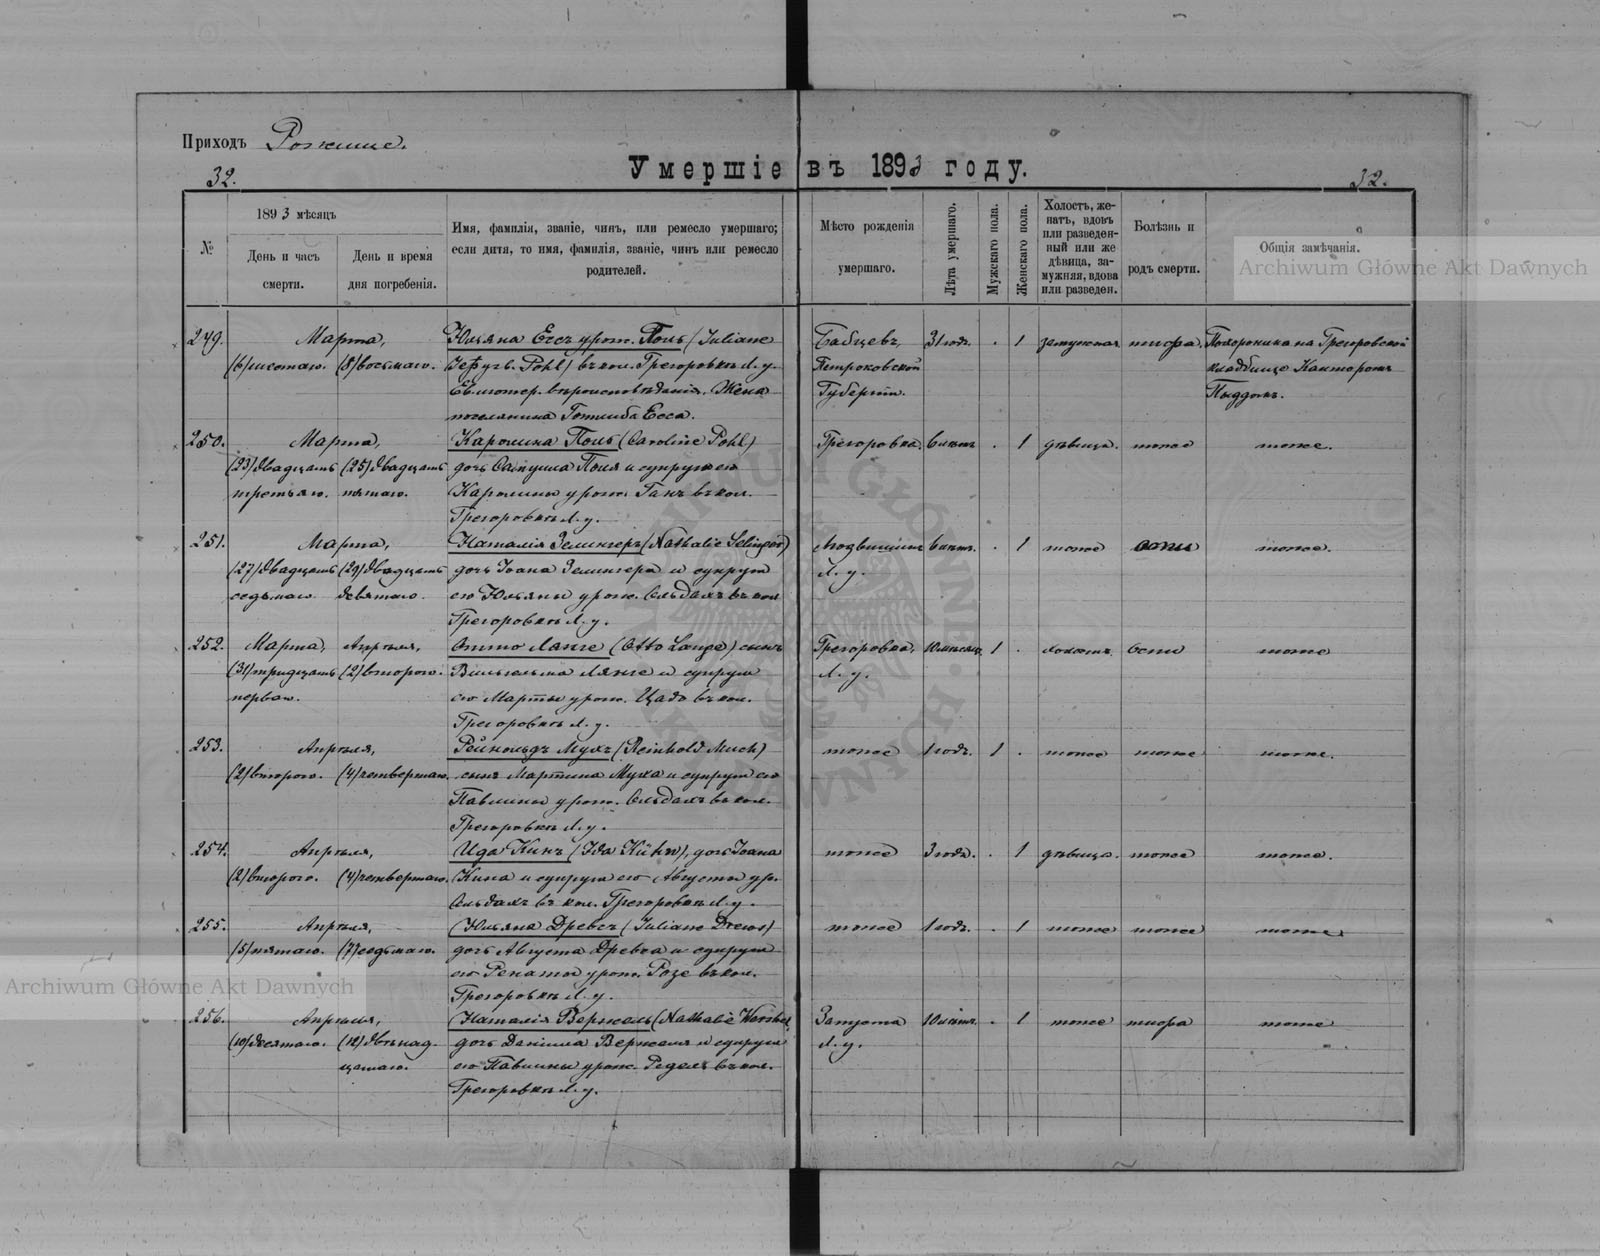 Приходъ Рожище.
32.
Умершіе въ 1893 году.
32.
№
1893 мѣсяцъ
День и часъ
смерти.
День и время
дня погребенія.
Имя, фамилія, званіе, чинъ, или ремесло умершаго;
если дитя, то имя, фамилія, званіе, чинъ или ремесло
родителей.
Мѣсто рожденія
умершаго.
Лѣта умершаго.
Мужскаго пола.
Женскаго пола.
Холостъ, же-
натъ, вдовъ
или разведен-
ный или же
дѣвица, за-
мужняя, вдова
или разведен.
Болѣзнь и
родъ смерти.
Общія замѣчанія.
Archiwum Główne Akt Dawnych
249.
Марта,
(6) шестаго. (8) восьмаго.
Юльяна Ессъ урож. Поль (Juliane
Pohl) въ кол. Грегоровкѣ Л. у.
Ев. лютер. вѣроисповѣданія. Жена
поселянина Готлиба Есса.
Петроковской
Губерніи.
31 годъ.
1
замужняя
тифа.
Похоронила на Грегоровской
кладбище Канторомъ
250.
Марта,
(23) двадцать (25) двадцать
третьяго. пятаго.
Каролина Поль (Caroline Pohl)
дочь Самуила Поля и супруги его
Каролины урож. Ганъ въ кол.
Грегоровкѣ Л. у.
Грегоровка
6 лѣтъ
.
1
дѣвица.
тоже
тоже.
251.
Марта,
(27) двадцать (29) двадцать
седьмаго. девятаго.
Наталія Зелингеръ (Nathalie Selinger)
дочь Іоана Зелингера и супруги
его Юльяны урож. Ольдахъ въ кол.
Грегоровкѣ Л. у.
Л. у.
6 лѣтъ.
.
1
тоже
оспы
тоже.
252.
Марта, Апрѣля,
(31) тридцать (2) втораго.
перваго.
Отто Лянге (Otto Lange) сынъ
Вильгельма Лянге и супруги
его Марты урож. Цадъ въ кол.
Грегоровкѣ Л. у.
Грегоровка,
Л. у.
10 мѣсяц.
1
.
холостъ.
оспы
тоже
253.
Апрѣля,
(2) втораго. (4) четвертаго.
Рейнольдъ Мухъ (Reinhold Much)
сынъ Мартина Муха и супруги его
Павлины урож. Ольдахъ въ кол.
Грегоровкѣ Л. у.
тоже
1 годъ.
1
.
тоже
тоже
тоже.
254.
Апрѣля,
(2) втораго. (4) четвертаго.
Ида Кинъ (Ida Kühn), дочь Іоана
Кина и супруги его Августы ур.
Ольдахъ въ кол. Грегоровкѣ Л. у.
тоже
3 годъ.
.
1
дѣвица.
тоже
тоже.
255.
Апрѣля,
(5) пятаго. (7) седьмаго.
Юльяна Древсъ (Juliane Drews)
дочь Августа Древса и супруги
его Ренаты урож. Розе въ кол.
Грегоровкѣ Л. у.
тоже
1 годъ.
.
1
тоже
тоже
тоже.
Archiwum Główne Akt Dawnych
256.
Апрѣля,
(10) десятаго. (12) двѣнад-
цатаго.
Наталія Вершель (Nathalie
дочь Даніила Вершеля и супруги
его Павлины урож. Редель въ кол.
Грегоровкѣ Л. у.
Л. у.
10 лѣтъ.
.
1
тоже
тифа
тоже
ARCHIWUM GŁÓWNE AKT DAWNYCH